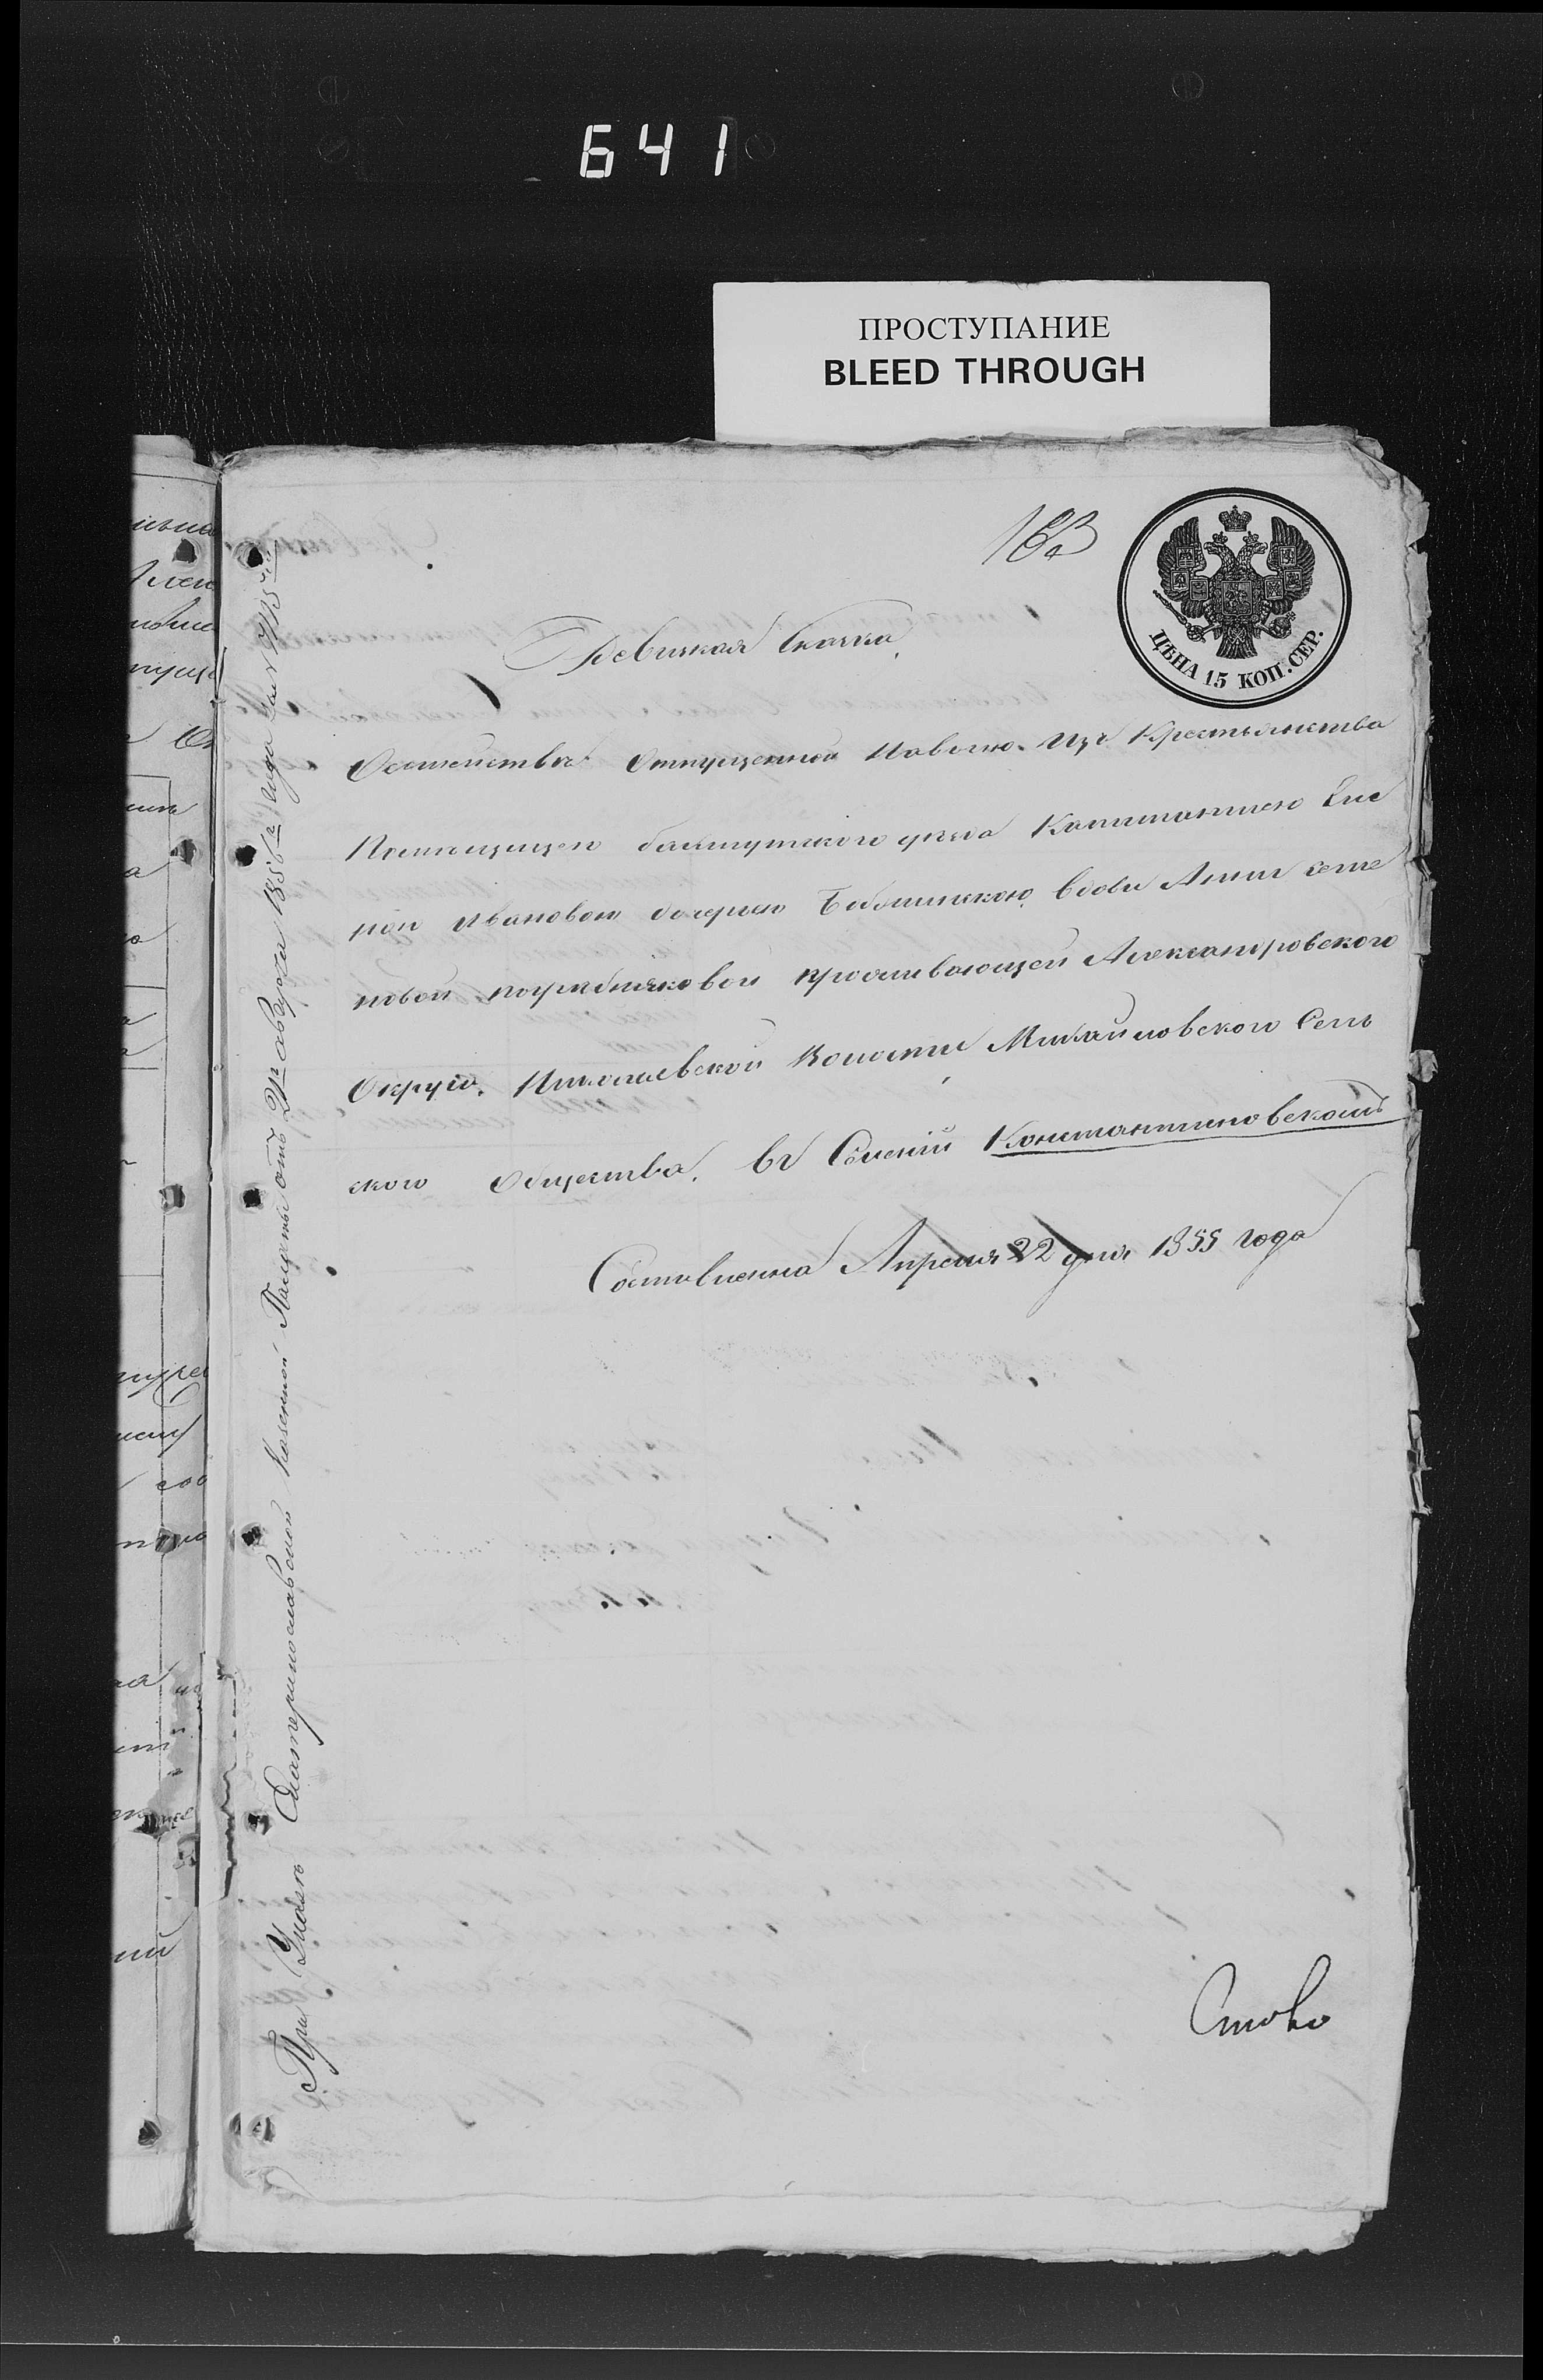 641
ПРОСТУПАНИЕ
BLEED THROUGH
ЦѢНА 15 КОП. СЕР.
Ревизкая Скаска
О семействѣ отпущенной на волю изъ крестьянства
Помещицею бахмутского уезда Капитаншею Еле
ной Ивановою дочерью вдовы Анны семе
новой проживающей Александровского
Округа Николаевской Волости Михайловского Сель
ского Общества. Въ Селеніи Константиновскомъ
Составленна Апреля 22 дня 1855 года
При Указе Екатеринославской Казенной Палаты отъ августа 1856 года за №